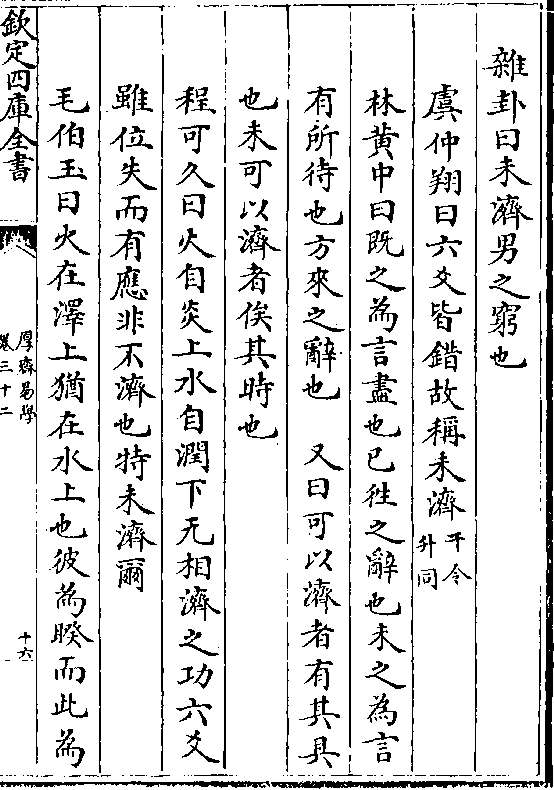 雜卦曰未濟男之窮也
虞仲翔曰六爻皆錯故稱未濟
干令
升同
林黄中曰既之為言盡也已徃之辭也未之為言
有所待也方來之辭也　又曰可以濟者有其具
也未可以濟者俟其時也
程可久曰火自炎上水自潤下无相濟之功六爻
雖位失而有應非不濟也特未濟爾
毛伯玉曰火在澤上猶在水上也彼為睽而此為
欽定四庫全書
厚齋易學
卷三十二
十六